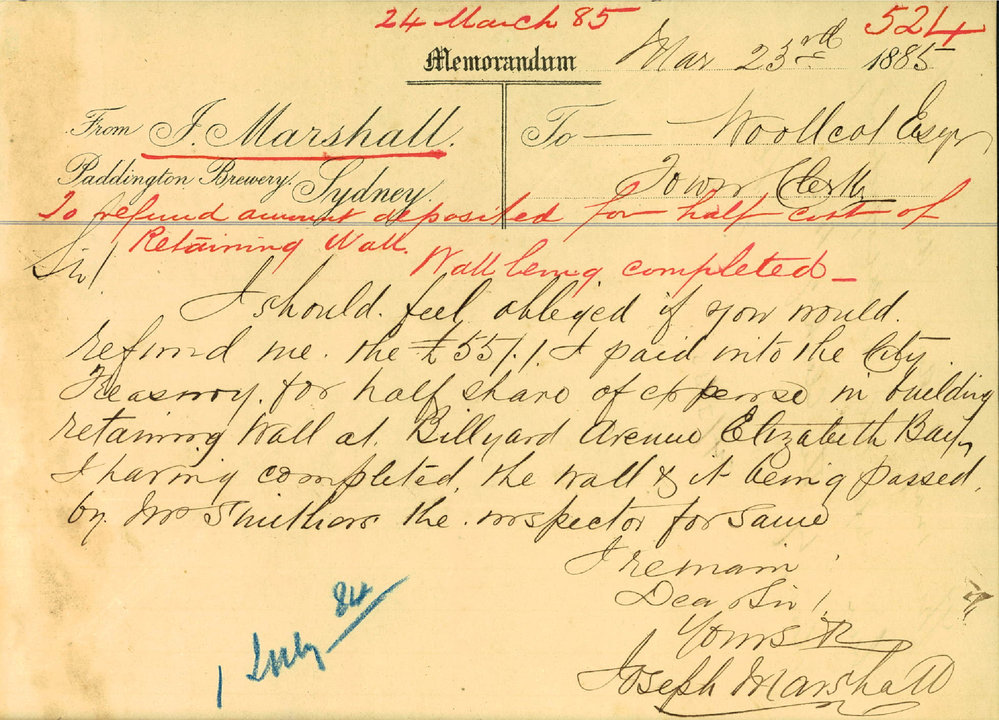 24 March 85
524
Memorandum
Mar 23rd 1885
From J. Marshall.
Paddington Brewery. Sydney.
To — Woollcot Esqr
Town Clerk
To refund amount deposited for half cost of
Retaining Wall.
Wall being completed —
Sir/
I should feel obliged if you would
refund me the £55/./ I paid into the City
Treasury for half share of expense in building
retaining wall at Billyard Avenue Elizabeth Bay,
I having completed the wall & it being passed
by Mr Smithers the inspector for same
I remain
Dear Sir/
Yours
Joseph Marshall
1 July 84